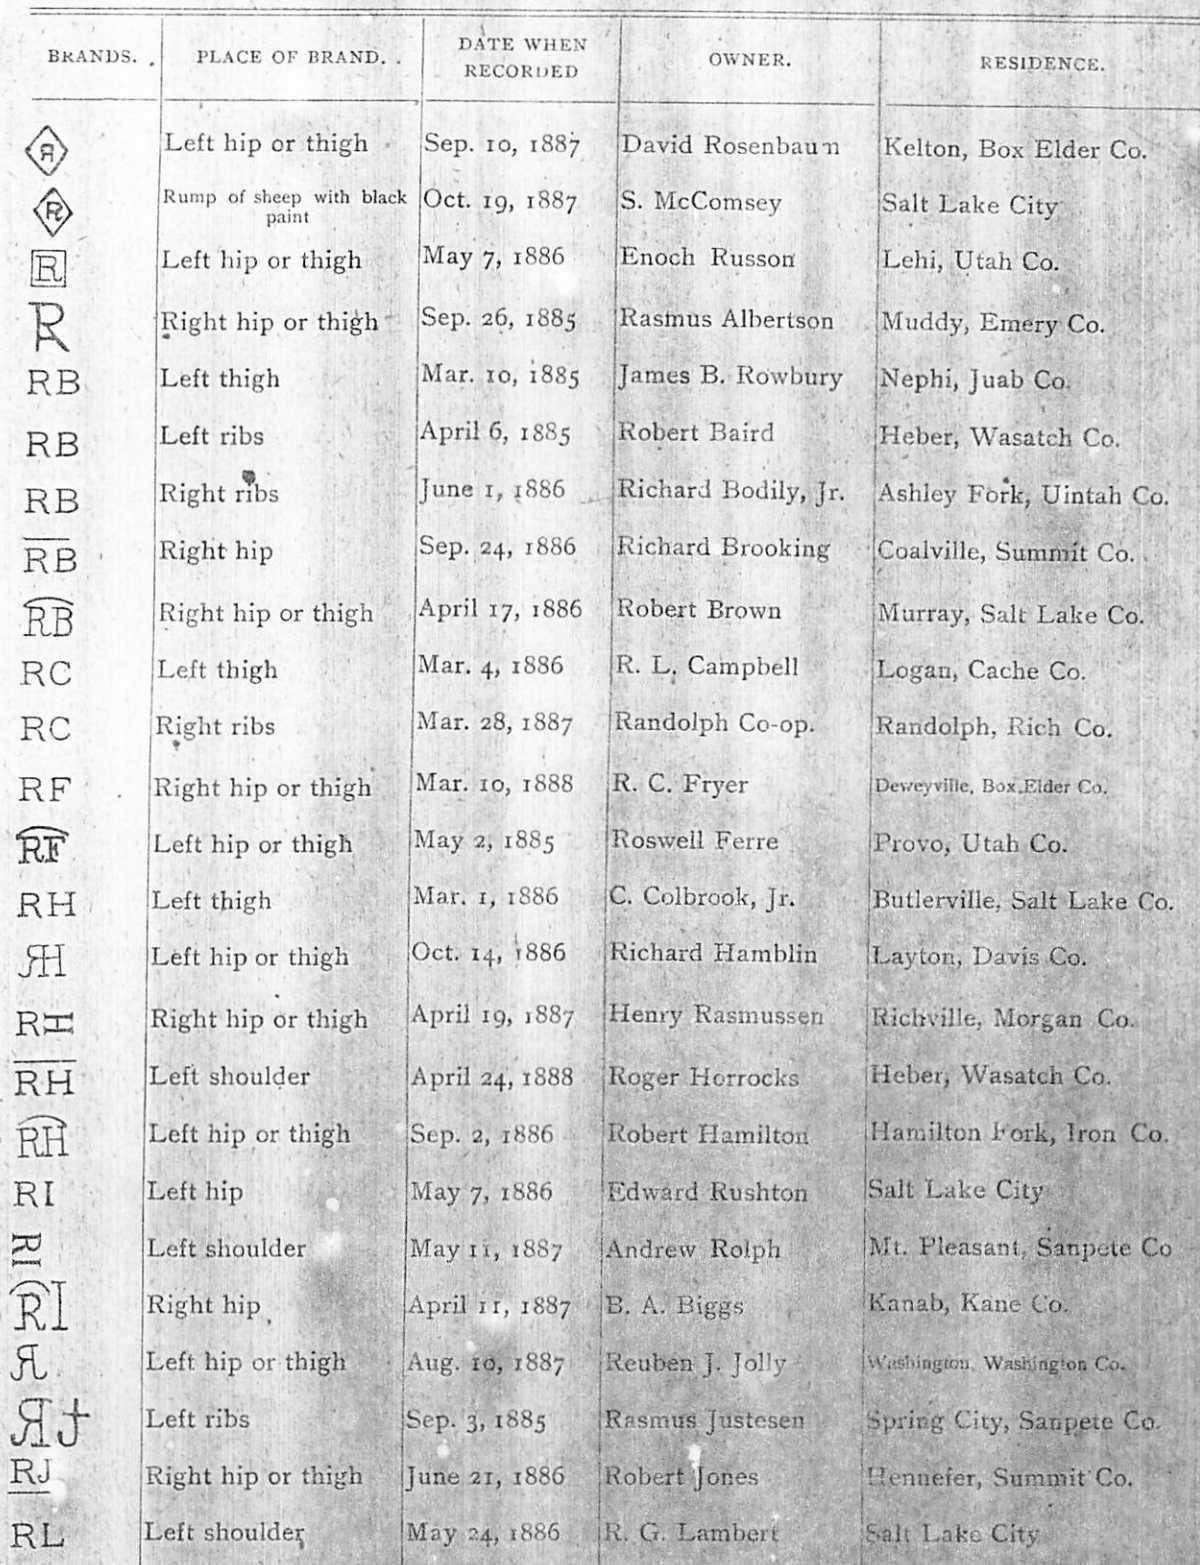 BRANDS. PLACE OF BRAND. DATE WHEN RECORDED OWNER. RESIDENCE.
R Left hip or thigh Sep. 10, 1887 David Rosenbaum Kelton, Box Elder Co.
R Rump of sheep with black paint Oct. 19, 1887 S. McComsey Salt Lake City
R Left hip or thigh May 7, 1886 Enoch Russon Lehi, Utah Co.
R Right hip or thigh Sep. 26, 1885 Rasmus Albertson Muddy, Emery Co.
RB Left thigh Mar. 10, 1885 James B. Rowbury Nephi, Juab Co.
RB Left ribs April 6, 1885 Robert Baird Heber, Wasatch Co.
RB Right ribs June 1, 1886 Richard Bodily, Jr. Ashley Fork, Uintah Co.
RB Right hip Sep. 24, 1886 Richard Brooking Coalville, Summit Co.
RB Right hip or thigh April 17, 1886 Robert Brown Murray, Salt Lake Co.
RC Left thigh Mar. 4, 1886 R. L. Campbell Logan, Cache Co.
RC Right ribs Mar. 28, 1887 Randolph Co-op. Randolph, Rich Co.
RF Right hip or thigh Mar. 10, 1888 R. C. Fryer Deweyville, Box Elder Co.
RF Left hip or thigh May 2, 1885 Roswell Ferre Provo, Utah Co.
RH Left thigh Mar. 1, 1886 C. Colbrook, Jr. Butlerville, Salt Lake Co.
RH Left hip or thigh Oct. 14, 1886 Richard Hamblin Layton, Davis Co.
RH Right hip or thigh April 19, 1887 Henry Rasmussen Richville, Morgan Co.
RH Left shoulder April 24, 1888 Roger Horrocks Heber, Wasatch Co.
RH Left hip or thigh Sep. 2, 1886 Robert Hamilton Hamilton Fork, Iron Co.
RI Left hip May 7, 1886 Edward Rushton Salt Lake City
RI Left shoulder May 11, 1887 Andrew Rolph Mt. Pleasant, Sanpete Co
RI Right hip April 11, 1887 B. A. Biggs Kanab, Kane Co.
Left hip or thigh Aug. 10, 1887 Reuben J. Jolly Washington, Washington Co.
Left ribs Sep. 3, 1885 Rasmus Justesen Spring City, Sanpete Co.
RJ Right hip or thigh June 21, 1886 Robert Jones Hennefer, Summit Co.
RL Left shoulder May 24, 1886 R. G. Lambert Salt Lake City